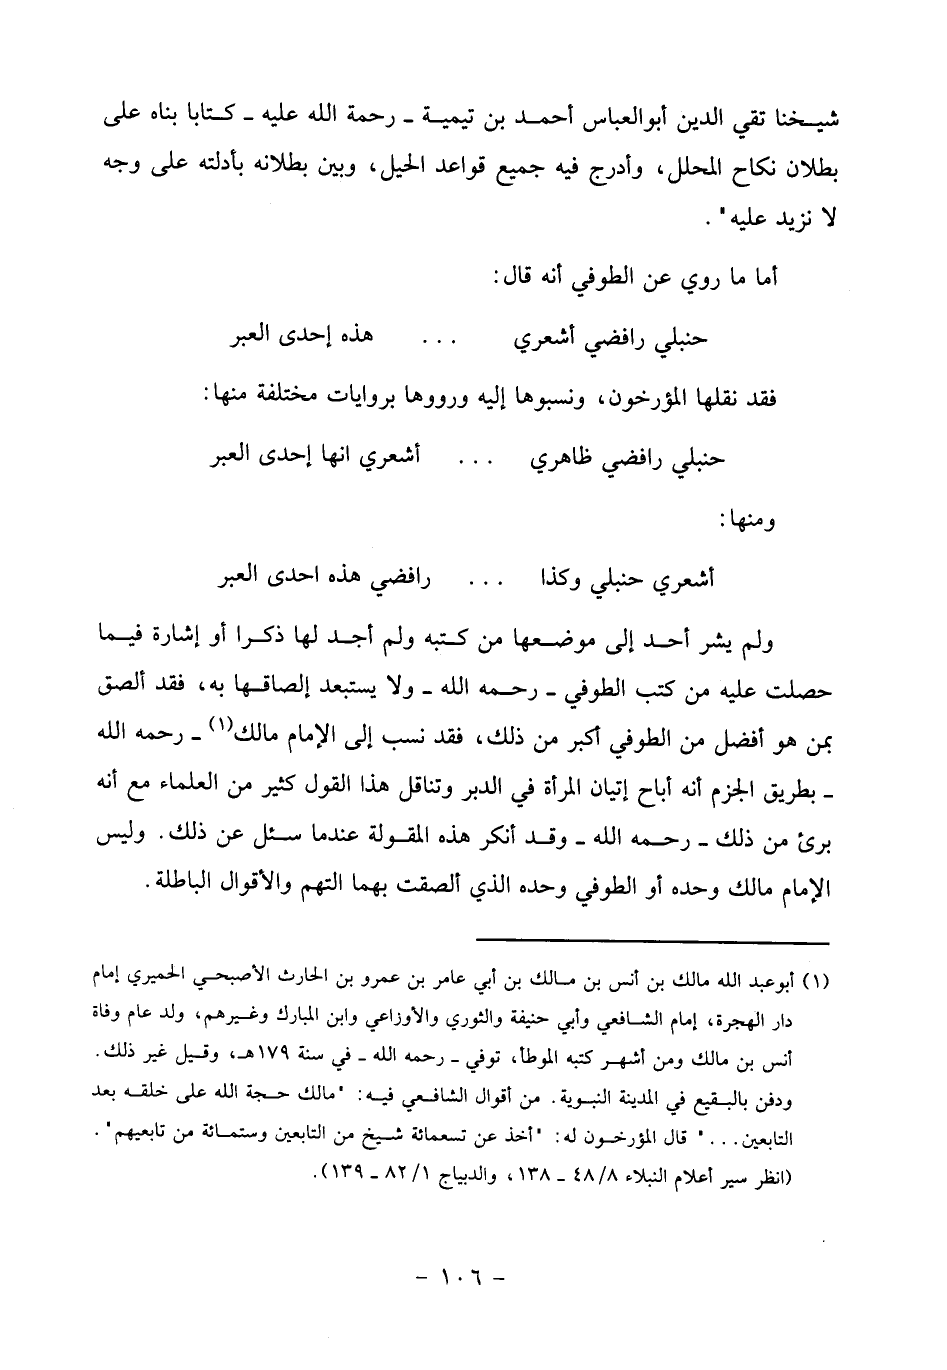 شيخنا تقي الدين أبوالعباس أحمد بن تيمية ـ رحمة الله عليه ـ كتابا بناه على
بطلان نكاح المحلل، وأدرج فيه جميع قواعد الحيل، وبين بطلانه بأدلته على وجه
لا نزيد عليه" .
أما ما روي عن الطوفي أنه قال:
حنبلي رافضي أشعري ... هذه إحدى العبر
فقد نقلها المؤرخون، ونسبوها إليه ورووها بروايات مختلفة منها:
حنبلي رافضي ظاهري ... أشعري انها إحدى العبر
ومنها:
أشعري حنبلي وكذا ... رافضي هذه احدى العبر
ولم يشر أحد إلى موضعها من كتبه ولم أجد لها ذكرا أو إشارة فيما
حصلت عليه من كتب الطوفي ـ رحمه الله ـ ولا يستبعد إلصاقها به، فقد ألصق
بمن هو أفضل من الطوفي أكبر من ذلك، فقد نسب إلى الإمام مالك(١) ـ رحمه الله
ـ بطريق الجزم أنه أباح إتيان المرأة في الدبر وتناقل هذا القول كثير من العلماء مع أنه
برئ من ذلك ـ رحمه الله ـ وقد أنكر هذه المقولة عندما سئل عن ذلك. وليس
الإمام مالك وحده أو الطوفي وحده الذي ألصقت بهما التهم والأقوال الباطلة.
(١) أبوعبد الله مالك بن أنس بن مالك بن أبي عامر بن عمرو بن الحارث الأصبحي الحميري إمام
دار الهجرة، إمام الشافعي وأبي حنيفة والثوري والأوزاعي وابن المبارك وغيرهم، ولد عام وفاة
أنس بن مالك ومن أشهر كتبه الموطأ، توفي ـ رحمه الله ـ في سنة ١٧٩هـ، وقيل غير ذلك.
ودفن بالبقيع في المدينة النبوية. من أقوال الشافعي فيه: "مالك حجة الله على خلقه بعد
التابعين..." قال المؤرخون له: "أخذ عن تسعمائة شيخ من التابعين وستمائة من تابعيهم".
(انظر سير أعلام النبلاء ٤٨/٨ ـ ١٣٨، والديباج ٨٢/١ ـ ١٣٩).
- ١٠٦ -